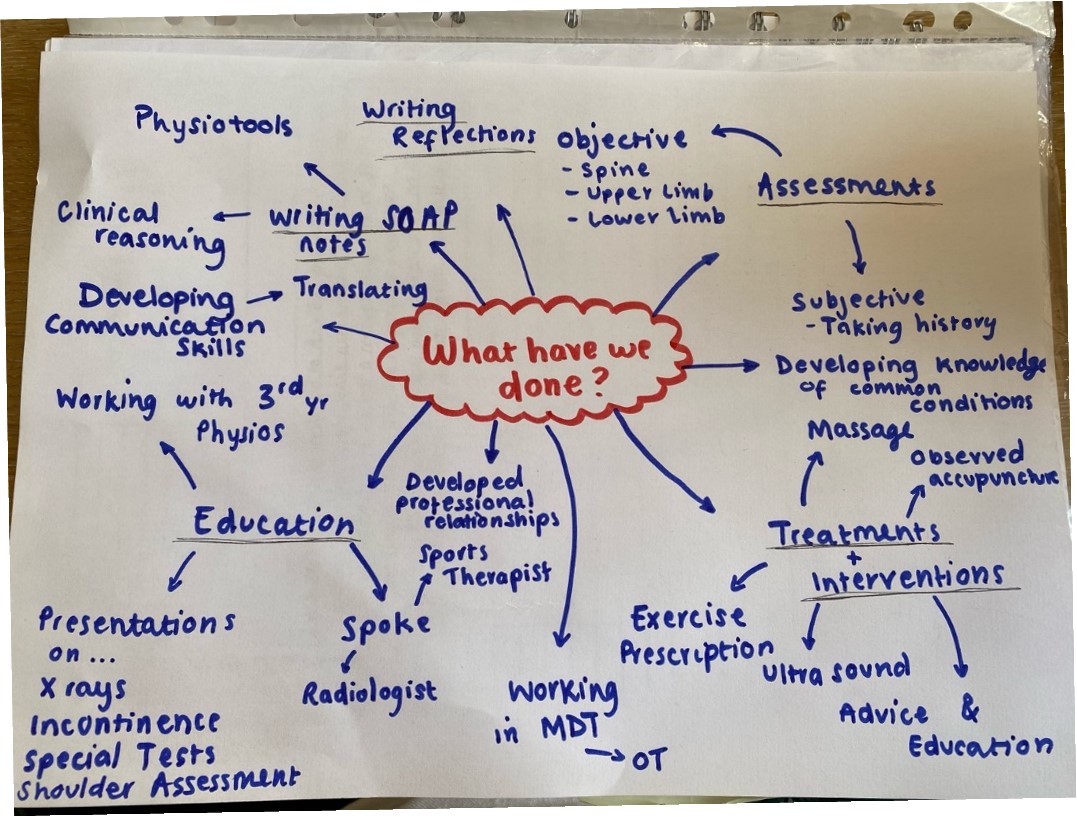 Physiotools
Writing
Reflections
Objective
- Spine
- Upper limb
- Lower limb
Assessments
Subjective
- Taking history
Clinical
reasoning
Writing SOAP
notes
Developing
Communication
Skills
Translating
What have we
done?
Developing knowledge
of common
conditions
Working with 3rd yr
Physios
Education
Presentations
on ...
X rays
Incontinence
Special Tests
Shoulder Assessment
Spoke
Radiologist
Sports
Therapist
Developed
professional
relationships
Working
in MDT
→ OT
Massage
Observed
accupuncture
Treatments
+
Interventions
Exercise
Prescription
Ultra sound
Advice &
Education